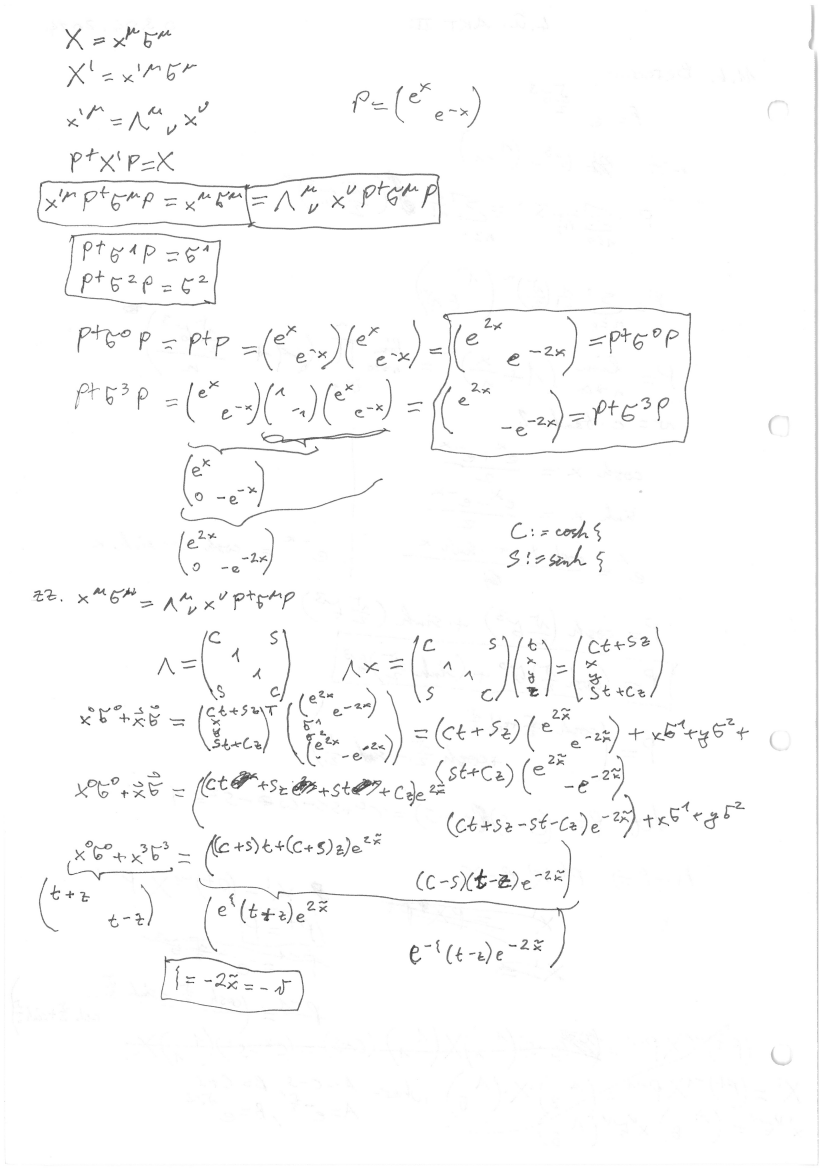 X = x^μ σ^μ
X' = x'^μ σ^μ
x'^μ = Λ^μ_ν x^ν
P = (e^x  e^-x)
P† X' P = X
x'^μ P† σ^μ P = x^μ σ^μ = Λ^μ_ν x^ν P† σ^μ P
P† σ^1 P = σ^1
P† σ^2 P = σ^2
P† σ^0 P = P† P = (e^x  e^-x) (e^x  e^-x) = (e^2x  e^-2x) = P† σ^0 P
P† σ^3 P = (e^x  e^-x) (1  -1) (e^x  e^-x) = (e^2x  -e^-2x) = P† σ^3 P
(e^x
0  -e^-x)
(e^2x
0  -e^-2x)
C := cosh ξ
S := sinh ξ
zz. x^μ σ^μ = Λ^μ_ν x^ν P† σ^μ P
Λ = (C  S  1  1  S  C)  Λx = (C  S  1  1  S  C) (t  x  y  z) = (Ct+Sz  x  y  St+Cz)
x^0 σ^0 + x⃗ σ⃗ = (Ct+Sz  x  y  St+Cz)^T ((e^2x  e^-2x)  σ^1  σ^2  (e^2x  -e^-2x)) = (Ct+Sz) (e^2x̃  e^-2x̃) + xσ^1 + yσ^2 +
(St+Cz) (e^2x̃  -e^-2x̃)
x^0 σ^0 + x⃗ σ⃗ = ((Ct + Sz + St + Cz) e^2x̃
(Ct+Sz-St-Cz) e^-2x̃) + xσ^1 + yσ^2
x^0 σ^0 + x^3 σ^3 = ((C+S)t + (C+S)z) e^2x̃
(C-S)(t-z) e^-2x̃)
(t+z
t-z)
(e^ξ (t+z) e^2x̃
e^-ξ (t-z) e^-2x̃)
ξ = -2x̃ = -v